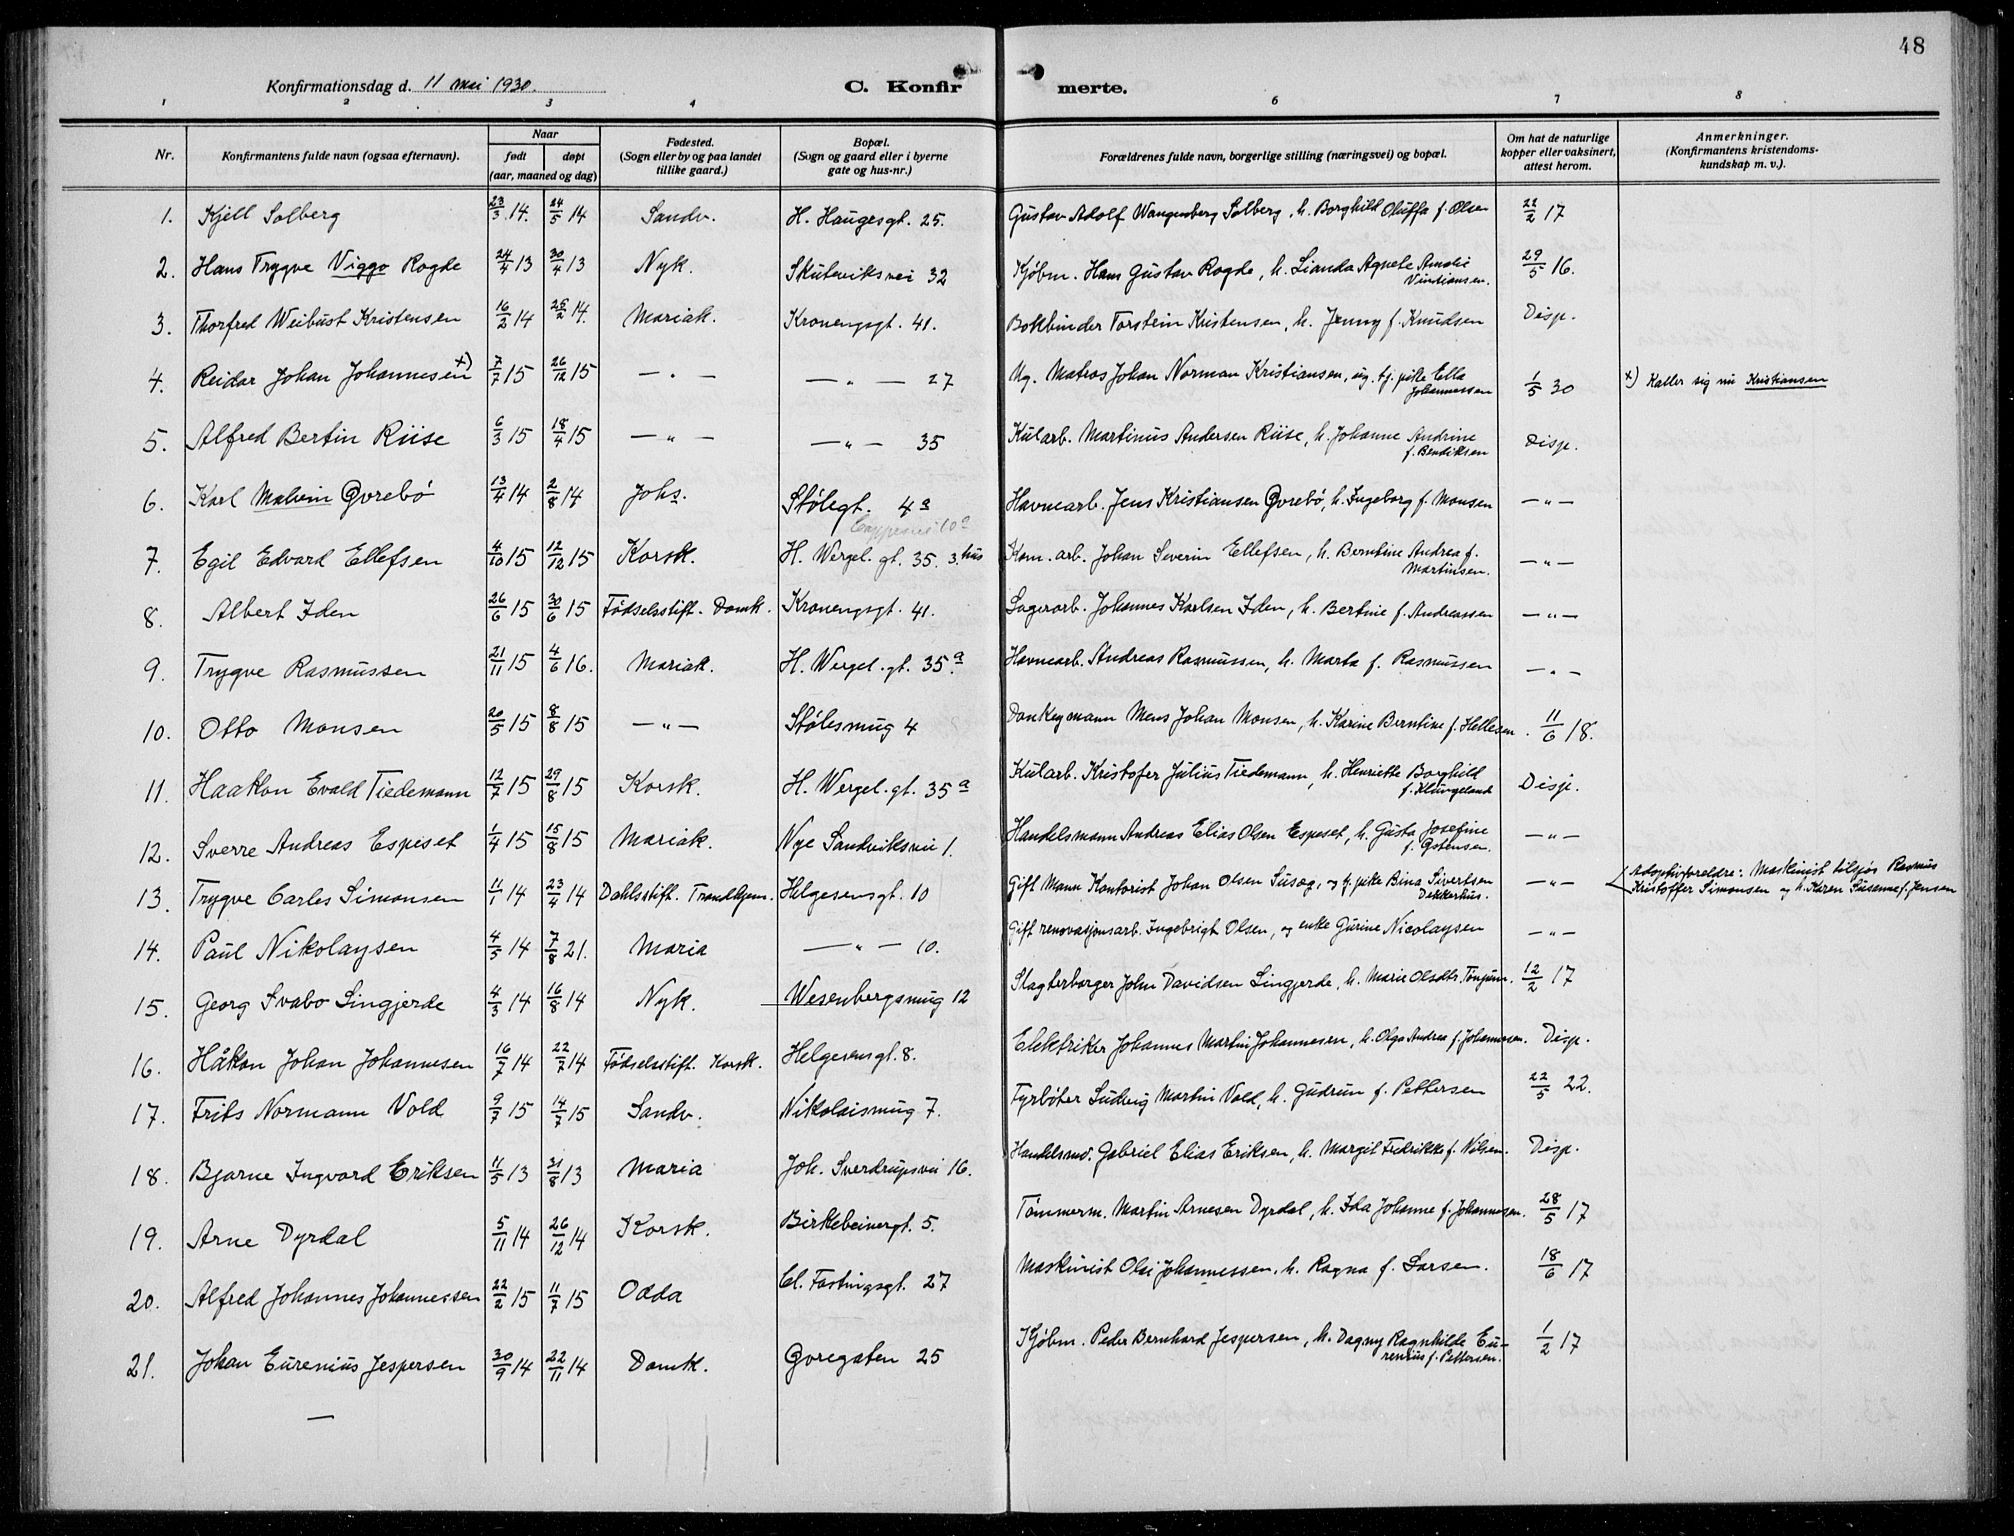 48
Konfirmationsdag d. 11 mai 1930.
C. Konfir merte.
1 2 3 4 6 7 8
Nr. Konfirmantens fulde navn (ogsaa efternavn). Naar født døpt (aar, maaned og dag) Fødested. (Sogn eller by og paa landet tillike gaard.) Bopæl. (Sogn og gaard eller i byerne gate og hus-nr.) Forældrenes fulde navn, borgerlige stilling (næringsvei) og bopæl. Om hat de naturlige kopper eller vaksinert, attest herom. Anmerkninger. (Konfirmantens kristendoms-kundskap m. v.).
1. Kjell Solberg 23/3 14. 24/5 14 Sandv. H. Haugesgt. 25. Gustav Adolf Wangensberg Solberg, h. Borghild Oluffa f. Olsen 22/2 17
2. Hans Trygve Viggo Rogde 24/4 13 30/4 13 Nyk. Skuteviksvei 32 Kjøbm. Hans Gustav Rogde, h. Lianda Agnete Amalie Vindiansen. 29/5 16.
3. Thorfred Weibust Kristensen 16/2 14 25/2 14. Mariak. Kronengsgt. 41. Bokbinder Torstein Kristensen, h. Jenny f. Knudsen Disp.
4. Reidar Johan Johannesen x) 7/7 15 26/12 15 — " — — " — 27 Ug. Matros Johan Norman Kristiansen, ug. tj. pike Ella Johannessen 1/5 30 x) Kaller sig nu Kristiansen
5. Alfred Bertin Riise 6/3 15 18/4 15 — " — — " — 35 Kularb. Martinus Andersen Riise, h. Johanne Andrine f. Bendiksen Disp.
6. Karl Malvin Øvrebø 13/4 14 2/8 14 Johs. Stølegt. 4a Havnearb. Jens Kristiansen Øvrebø, h. Ingeborg f. Monsen — " —
7. Egil Edvard Ellefsen 4/10 15 12/12 15 Korsk. H. Wergel. gt. 35. 3. hus Kom. arb. Johan Severin Ellefsen, h. Berntine Andrea f. Martinsen. — " —
8. Albert Iden 26/6 15 30/6 15 Fødselsstift. Domk. Kronengsgt. 41. Lagerarb. Johannes Karlsen Iden, h. Bertine f. Andreassen — " —
9. Trygve Rasmussen 21/11 15 4/6 16. Mariak. H. Wergel. gt. 35a. Havnearb. Andreas Rasmussen, h. Marta f. Rasmussen — " —
10. Otto Monsen 20/5 15 8/8 15 — " — Stølesmug 4 Donkeymann Mens Johan Monsen, h. Karine Berntine f. Hellesen. 11/6 18.
11. Haakon Evald Tiedemann 12/7 15 29/8 15 Korsk. H. Wergel. gt. 35a Kularb. Kristofer Julius Tiedemann, h. Henriette Borghild f. Klungeland Disp.
12. Sverre Andreas Espeset 1/4 15 15/8 15 Mariak. Nye Sandviksvei 1. Handelsmann Andreas Elias Olsen Espeset, h. Gusta Josefine f. Østensen. — " —
13. Trygve Carles Simonsen 11/1 14 23/4 14 Dahlsstift. Trondhjem. Helgesensgt. 10 Gift Mann Kontorist Johan Olsen Susæg, og tj. pike Bina Sivertsen Dekkerhus. — " — Adoptivforeldre: Maskinist tilsjøs Rasmus Kristoffer Simonsen og h. Karen Susanne f. Jensen
14. Paul Nikolaysen 4/5 14 7/8 21. Maria — " — 10. Gift renovasjonsarb. Ingebrigt Olsen, og enke Gurine Nicolaysen — " —
15. Georg Svabo Lingjerde 4/3 14 16/8 14 Nyk. Wesenbergsmug 12 Slagterborger John Davidsen Lingjerde, h. Marie Olsdtr. Tønjum. 12/2 17
16. Håkon Johan Johannesen 16/7 14 22/7 14 Fødselsstift. Korsk. Helgesensgt. 8. Elektriker Johannes Martin Johannesen, h. Olga Andrea f. Johannesen. Disp.
17. Frits Normann Vold 9/7 15 14/7 15 Sandv. Nikolaismug 7. Fyrbøter Ludvig Martin Vold, h. Gudrun f. Pettersen 22/5 22.
18. Bjarne Ingvard Eriksen 11/5 13 31/8 13 Maria Joh. Sverdrupsvei 16. Handelsmd. Gabriel Elias Eriksen, h. Margit Fredrikke f. Nilsen. Disp.
19. Arne Dyrdal 5/11 14 26/12 14 Korsk. Birkebeinergt. 5. Tømmerm. Martin Arnesen Dyrdal, h. Ida Johanne f. Johannesen. 28/5 17
20. Alfred Johannes Johannessen 22/2 15 11/7 15 Odda Cl. Fastingsgt. 27 Maskinist Olai Johannessen, h. Ragna f. Larsen. 18/6 17
21. Johan Eurenius Jespersen 30/9 14 22/11 14 Domk. Øvregaten 25 Kjøbm. Peder Bernhard Jespersen, h. Dagny Ragnhilde Eurenius f. Pettersen. 1/2 17